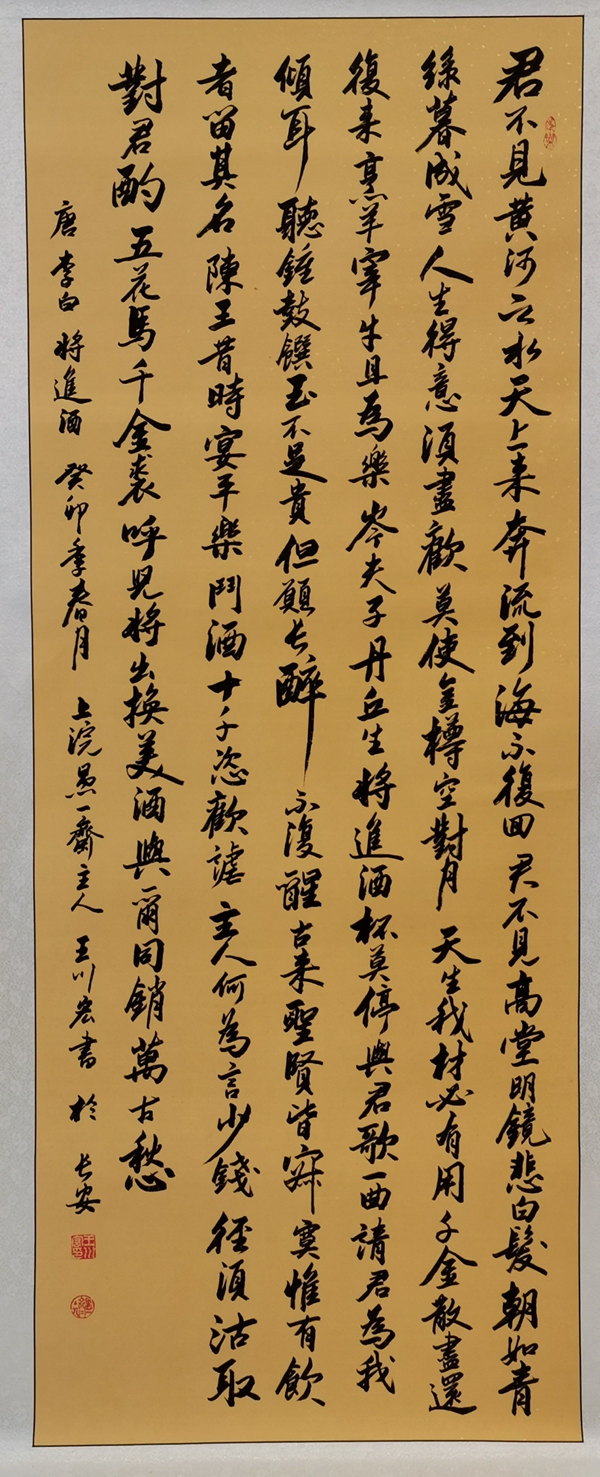 君不見黄河之水天上来奔流到海不復回君不見高堂明鏡悲白髮朝如青
絲暮成雪人生得意須盡歡莫使金樽空對月天生我材必有用千金散盡還
復来烹羊宰牛且為樂岑夫子丹丘生將進酒杯莫停與君歌一曲請君為我
傾耳聽鍾鼓饌玉不足貴但願長醉不復醒古来聖賢皆寂寞惟有飲
者留其名陳王昔時宴平樂鬥酒十千恣歡謔主人何為言少錢徑須沽取
對君酌五花馬千金裘呼兒將出換美酒與爾同銷萬古愁
唐李白將進酒癸卯季春月上浣愚一齋主人王川宏書於長安